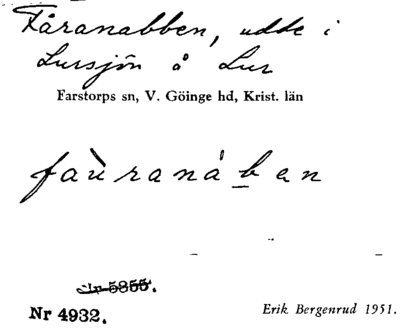 Fåranabben, udde i
Lursjön å Lur
Farstorps sn, V. Göinge hd, Krist. län
faùranáb̲en
Nr 4932.
Erik Bergenrud 1951.